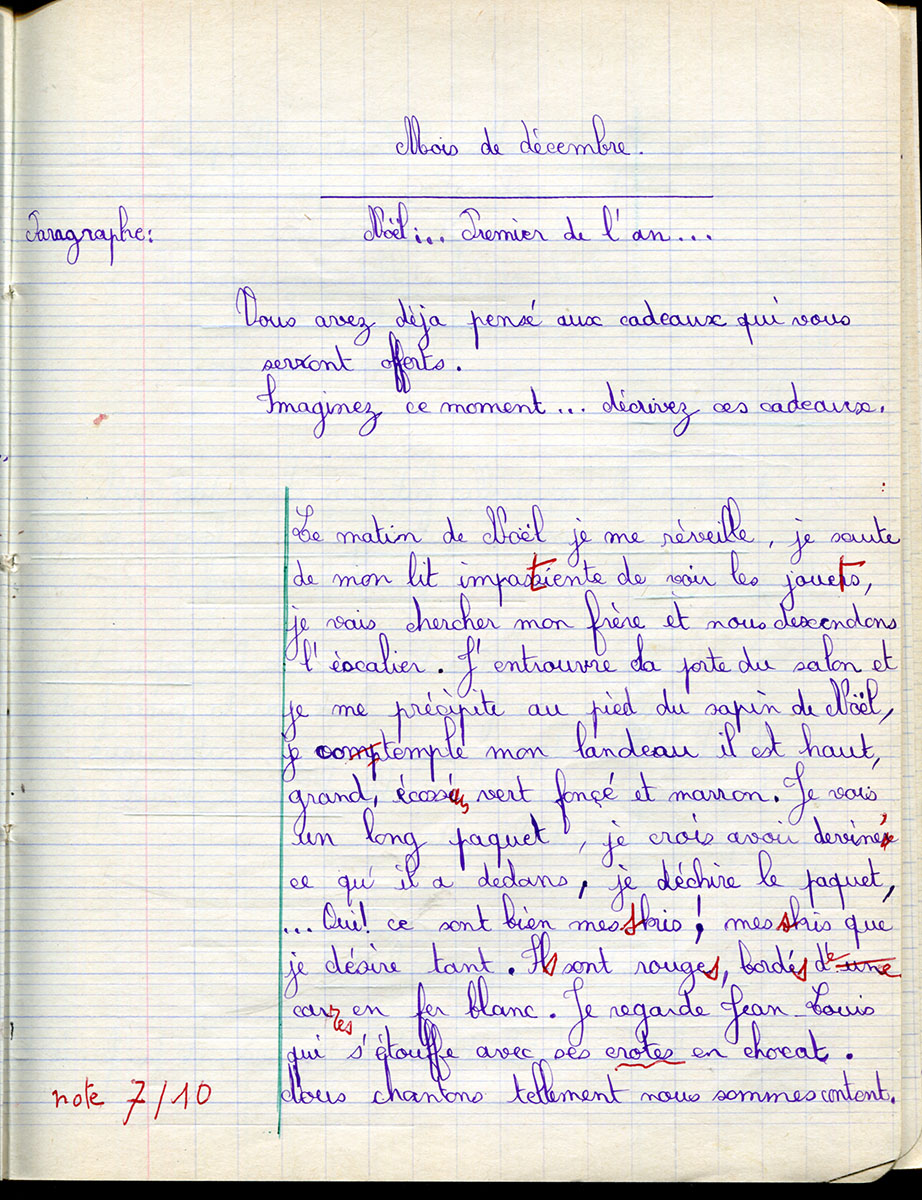 Mois de décembre.
Paragraphe: Noël... Premier de l'an...
Vous avez déja pensé aux cadeaux qui vous
serront offerts.
Imaginez ce moment... décrivez ces cadeaux.
Le matin de Noël je me réveille, je saute
de mon lit impatiente de voir les jouets,
je vais chercher mon frère et nous descendons
l'escalier. J'entrouvre la porte du salon et
je me précipite au pied du sapin de Noël,
je comptemple mon landeau il est haut,
grand, écossais vert fonçé et marron. Je vois
un long paquet, je crois avoir deviné
ce qu'il a dedans, je déchire le paquet,
... Oui! ce sont bien mes skis! mes skis que
je désire tant. Ils sont rouges, bordés de
carres en fer blanc. Je regarde Jean-Louis
qui s'étouffe avec ses crotes en chocat.
note 7/10 Nous chantons tellement nous sommes content.